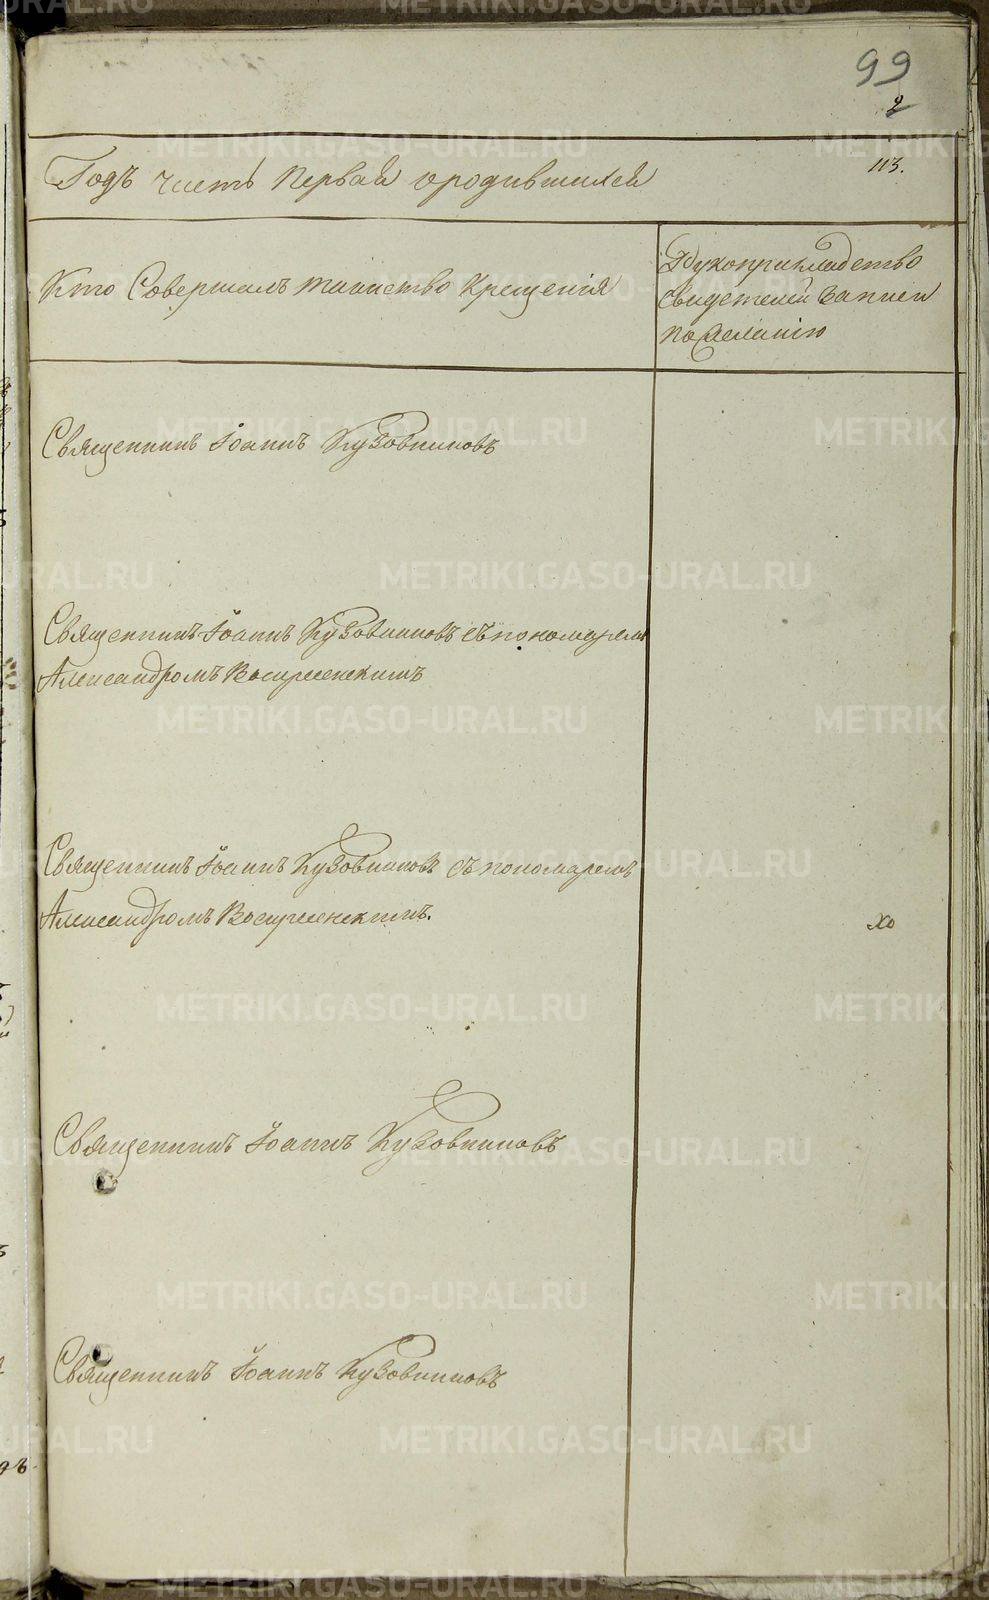 99
2
113.
Годъ часть первая ородившихся
Кто Совершалъ таинство крещенія
Рукоприкладство
свидетелей записи
по желанію
Священникъ Іоаннъ Кузовниковъ
Священникъ Іоаннъ Кузовниковъ съ пономаремъ
Александромъ Воскресенскимъ
Священникъ Іоаннъ Кузовниковъ съ пономаремъ
Александромъ Воскресенскимъ.
хо
Священникъ Іоаннъ Кузовниковъ
Священникъ Іоаннъ Кузовниковъ
METRIKI.GASO-URAL.RU